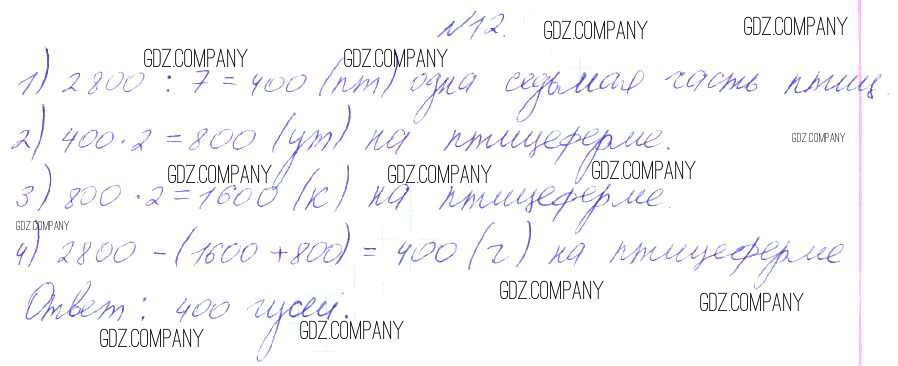 №12.
GDZ.COMPANY GDZ.COMPANY
GDZ.COMPANY GDZ.COMPANY
1) 2800 : 7 = 400 (пт) одна седьмая часть птиц.
2) 400 · 2 = 800 (ут) на птицеферме.
GDZ.COMPANY
GDZ.COMPANY GDZ.COMPANY GDZ.COMPANY
3) 800 · 2 = 1600 (к) на птицеферме.
GDZ.COMPANY
4) 2800 - (1600 + 800) = 400 (г) на птицеферме
GDZ.COMPANY GDZ.COMPANY
Ответ: 400 гусей.
GDZ.COMPANY GDZ.COMPANY